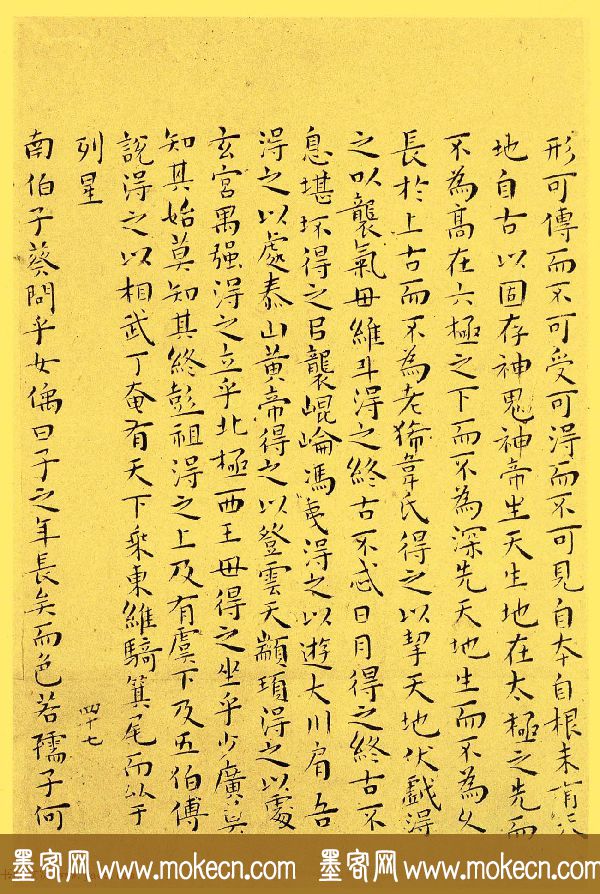 形可傳而不可受可得而不可見自本自根未有天
地自古以固存神鬼神帝生天生地在太極之先而
不為高在六極之下而不為深先天地生而不為久
長於上古而不為老狶韋氏得之以挈天地伏戲得
之以襲氣母維斗得之終古不忒日月得之終古不
息堪坏得之以襲崐崘馮夷得之以遊大川肩吾
得之以處泰山黃帝得之以登雲天顓頊得之以處
玄宮禺强得之立乎北極西王母得之坐乎少廣莫
知其始莫知其終彭祖得之上及有虞下及五伯傅
說得之以相武丁奄有天下乘東維騎箕尾而比于
列星
四十七
南伯子葵問乎女偊曰子之年長矣而色若孺子何
墨客网 www.mokecn.com 墨客网 www.mokecn.com